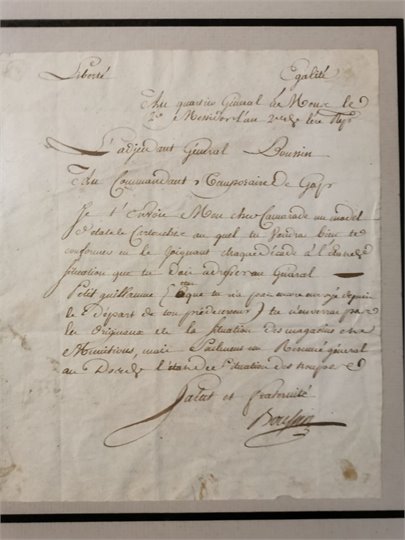 Liberté Egalité
Au quartier Général de le
2e Messidor l'an 2e de l'ère Repe
L'adjudant Général
Au Commandant Temporaire de Gap
Je t'Envoie Mon cher Camarade un model
d'état de au quel tu voudra bien te
conformer en le Joignant chaque décade à l'état de
situation que tu dois adresser au Général
Petit guillaume (que tu n'a pas encore envoyé depuis
le départ de ton prédécesseur) tu n'enverras pas
les Originaux de la situation des magasins
Munitions, mais Seulement un Résumé général
au de l'état de situation des troupes
Salut et fraternité